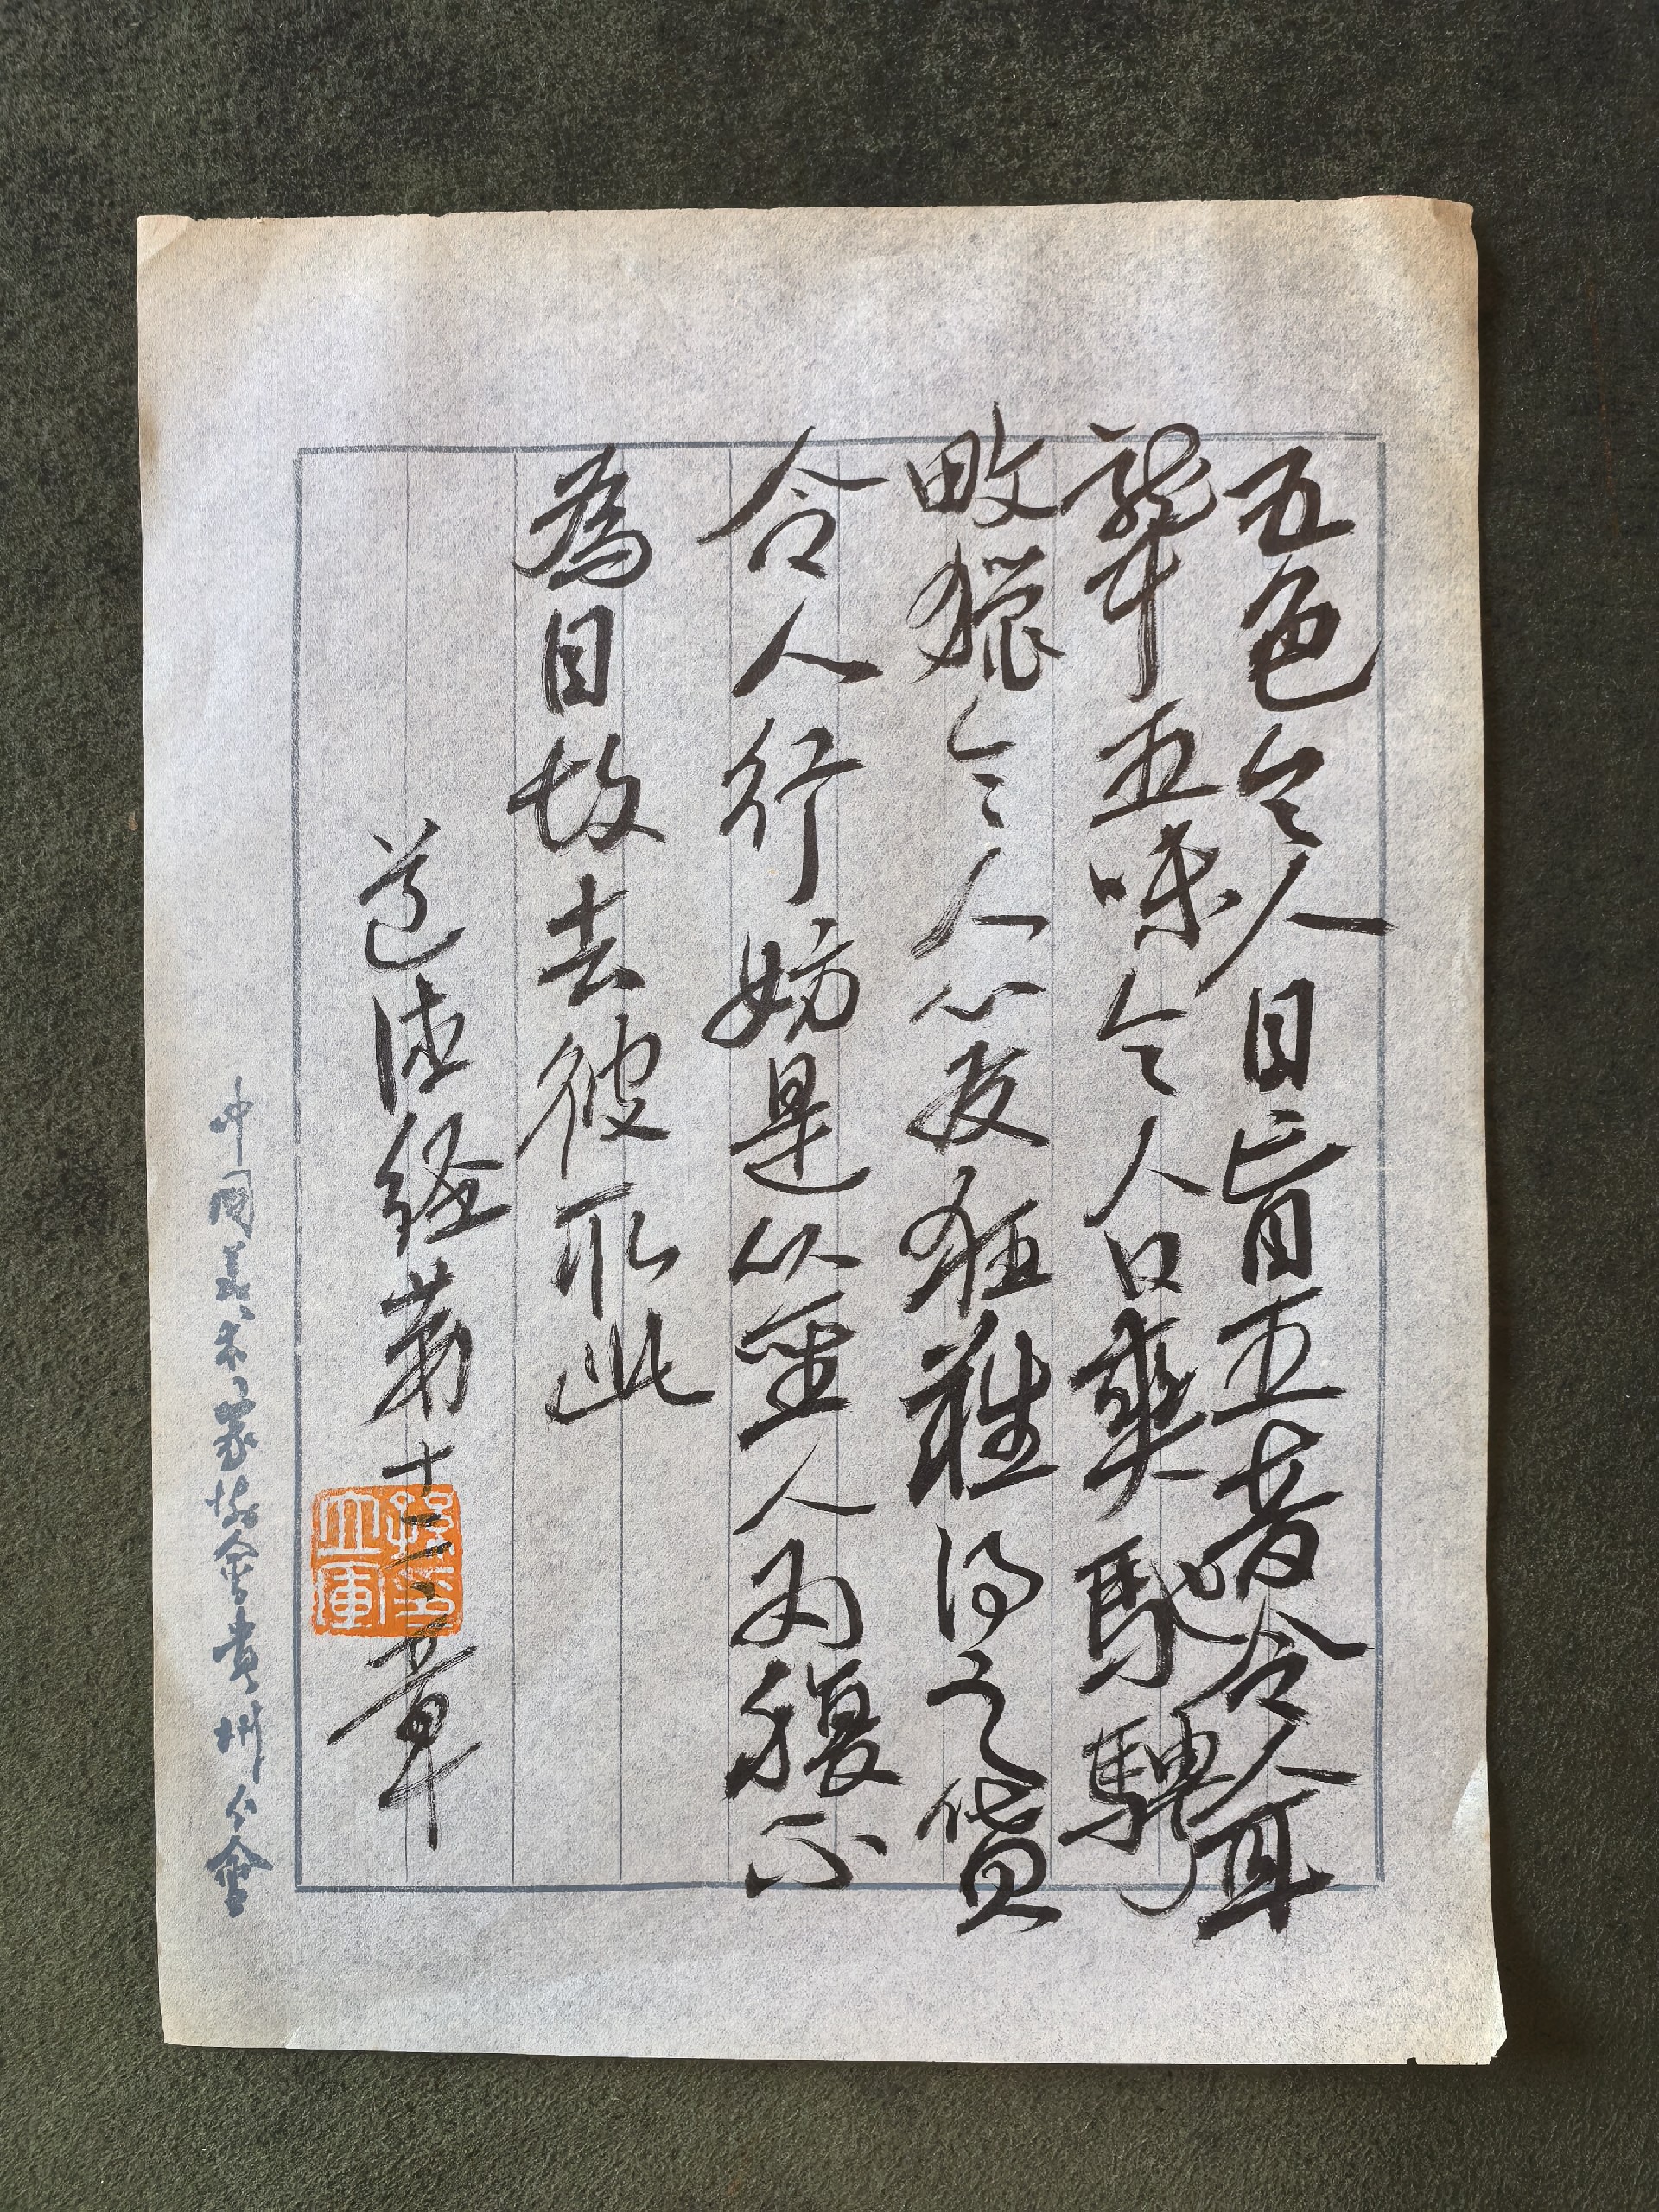 五色令人目盲五音令人耳
聾五味令人口爽馳騁
畋獵令人心發狂難得之貨
令人行妨是以聖人為腹不
為目故去彼取此
道德經第十二章
中國美术家協會貴州分會